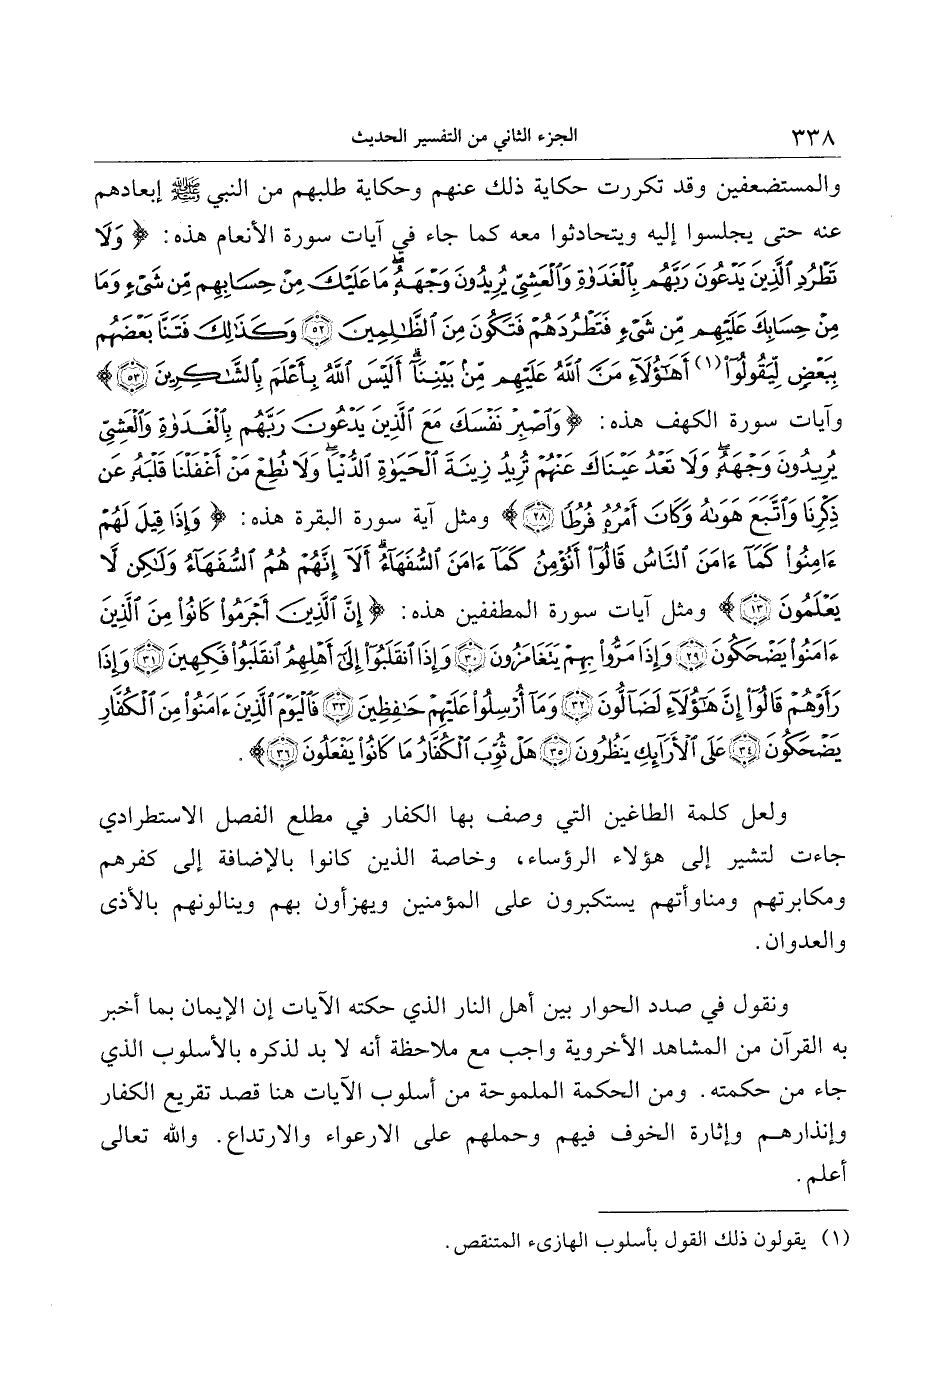 ٣٣٨ الجزء الثاني من التفسير الحديث
والمستضعفين وقد تكررت حكاية ذلك عنهم وحكاية طلبهم من النبي ﷺ إبعادهم
عنه حتى يجلسوا إليه ويتحادثوا معه كما جاء في آيات سورة الأنعام هذه: ﴿ وَلَا
تَطْرُدِ ٱلَّذِينَ يَدْعُونَ رَبَّهُم بِٱلْغَدَوٰةِ وَٱلْعَشِيِّ يُرِيدُونَ وَجْهَهُۥۖ مَا عَلَيْكَ مِنْ حِسَابِهِم مِّن شَيْءٍ وَمَا
مِنْ حِسَابِكَ عَلَيْهِم مِّن شَيْءٍ فَتَطْرُدَهُمْ فَتَكُونَ مِنَ ٱلظَّٰلِمِينَ ۝٥٢ وَكَذَٰلِكَ فَتَنَّا بَعْضَهُم
بِبَعْضٍ لِّيَقُولُوٓا۟ (١) أَهَٰٓؤُلَآءِ مَنَّ ٱللَّهُ عَلَيْهِم مِّنۢ بَيْنِنَآۗ أَلَيْسَ ٱللَّهُ بِأَعْلَمَ بِٱلشَّٰكِرِينَ ۝٥٣ ﴾
وآيات سورة الكهف هذه: ﴿ وَٱصْبِرْ نَفْسَكَ مَعَ ٱلَّذِينَ يَدْعُونَ رَبَّهُم بِٱلْغَدَوٰةِ وَٱلْعَشِيِّ
يُرِيدُونَ وَجْهَهُۥۖ وَلَا تَعْدُ عَيْنَاكَ عَنْهُمْ تُرِيدُ زِينَةَ ٱلْحَيَوٰةِ ٱلدُّنْيَاۖ وَلَا تُطِعْ مَنْ أَغْفَلْنَا قَلْبَهُۥ عَن
ذِكْرِنَا وَٱتَّبَعَ هَوَىٰهُ وَكَانَ أَمْرُهُۥ فُرُطًا ۝٢٨ ﴾ ومثل آية سورة البقرة هذه: ﴿ وَإِذَا قِيلَ لَهُمْ
ءَامِنُوا۟ كَمَآ ءَامَنَ ٱلنَّاسُ قَالُوٓا۟ أَنُؤْمِنُ كَمَآ ءَامَنَ ٱلسُّفَهَآءُۗ أَلَآ إِنَّهُمْ هُمُ ٱلسُّفَهَآءُ وَلَٰكِن لَّا
يَعْلَمُونَ ۝١٣ ﴾ ومثل آيات سورة المطففين هذه: ﴿ إِنَّ ٱلَّذِينَ أَجْرَمُوا۟ كَانُوا۟ مِنَ ٱلَّذِينَ
ءَامَنُوا۟ يَضْحَكُونَ ۝٢٩ وَإِذَا مَرُّوا۟ بِهِمْ يَتَغَامَزُونَ ۝٣٠ وَإِذَا ٱنقَلَبُوٓا۟ إِلَىٰٓ أَهْلِهِمُ ٱنقَلَبُوا۟ فَكِهِينَ ۝٣١ وَإِذَا
رَأَوْهُمْ قَالُوٓا۟ إِنَّ هَٰٓؤُلَآءِ لَضَآلُّونَ ۝٣٢ وَمَآ أُرْسِلُوا۟ عَلَيْهِمْ حَٰفِظِينَ ۝٣٣ فَٱلْيَوْمَ ٱلَّذِينَ ءَامَنُوا۟ مِنَ ٱلْكُفَّارِ
يَضْحَكُونَ ۝٣٤ عَلَى ٱلْأَرَآئِكِ يَنظُرُونَ ۝٣٥ هَلْ ثُوِّبَ ٱلْكُفَّارُ مَا كَانُوا۟ يَفْعَلُونَ ۝٣٦ ﴾.
ولعل كلمة الطاغين التي وصف بها الكفار في مطلع الفصل الاستطرادي
جاءت لتشير إلى هؤلاء الرؤساء، وخاصة الذين كانوا بالإضافة إلى كفرهم
ومكابرتهم ومناوأتهم يستكبرون على المؤمنين ويهزأون بهم وينالونهم بالأذى
والعدوان.
ونقول في صدد الحوار بين أهل النار الذي حكته الآيات إن الإيمان بما أخبر
به القرآن من المشاهد الأخروية واجب مع ملاحظة أنه لا بد لذكره بالأسلوب الذي
جاء من حكمته. ومن الحكمة الملموحة من أسلوب الآيات هنا قصد تقريع الكفار
وإنذارهم وإثارة الخوف فيهم وحملهم على الارعواء والارتداع. والله تعالى
أعلم.
(١) يقولون ذلك القول بأسلوب الهازىء المتنقص.